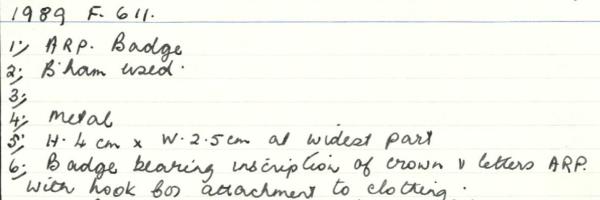 1989 F. 611.
1; ARP. Badge
2; B'ham used.
3;
4; Metal
5; H. 4 cm x W. 2.5cm at widest part
6; Badge bearing inscription of crown & letters ARP.
with hook for attachment to clothing.